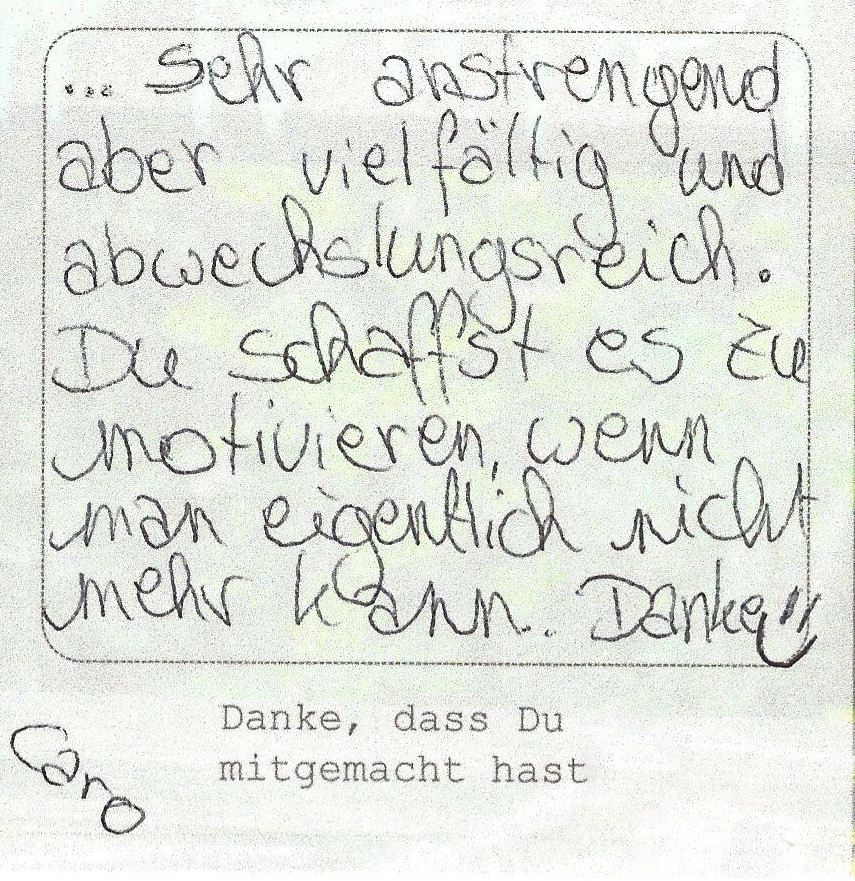 ... Sehr anstrengend
aber vielfältig und
abwechslungsreich.
Du schaffst es zu
motivieren, wenn
man eigentlich nicht
mehr kann. Danke
Danke, dass Du
mitgemacht hast
Caro